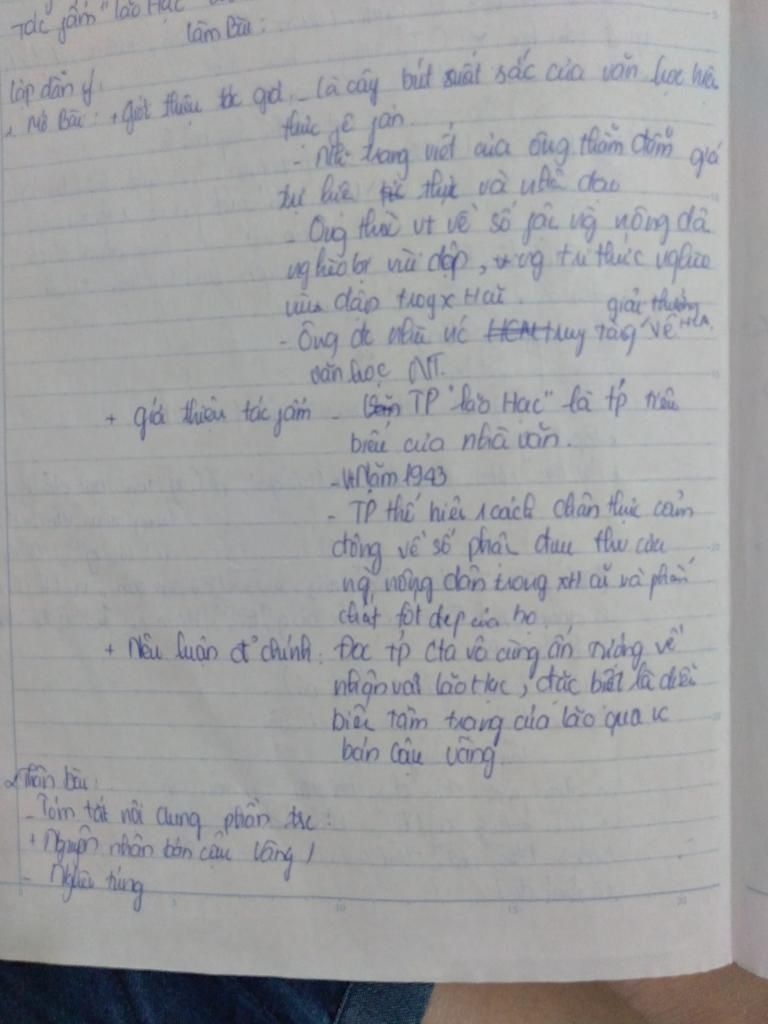 Tác fẩm "lão Hạc"
Làm Bài:
lập dàn ý
1, Mở Bài: + giới thiệu tác giả - là cây bút xuất sắc của văn học hiê
thực fê fán
- Nh trang viết của ông thấm đẫm giá
trị hiê thực và nhâ đạo
- Ông thườ vt về số fậc ng nông dâ
nghèo bị vùi dập, ng trí thức nghèo
mòn trog xHũ.
giải thưởng
- Ông đc nhà nc truy tặng về HCM.
văn học NT.
+ giới thiệu tác fẩm - TP "lão Hạc" là tp tiêu
biểu của nhà văn.
- Vt Năm 1943
- TP thể hiện 1 cách chân thực cảm
động về số phậ đau thư của
ng nông dân trong xH cũ và phẩm
chất tốt đẹp của họ
+ Nêu luận đ' chính: Đọc tp cta vô cùng ấn tượng về
nhận vật lão Hạc, đặc biệt là diễ
biến tâm trạng của lão qua vc
bán cậu vàng
2, Thân bài:
- Tóm tắt nội dung phần trc:
+ Nguyên nhân bán cậu Vàng /
- Nghèo túng